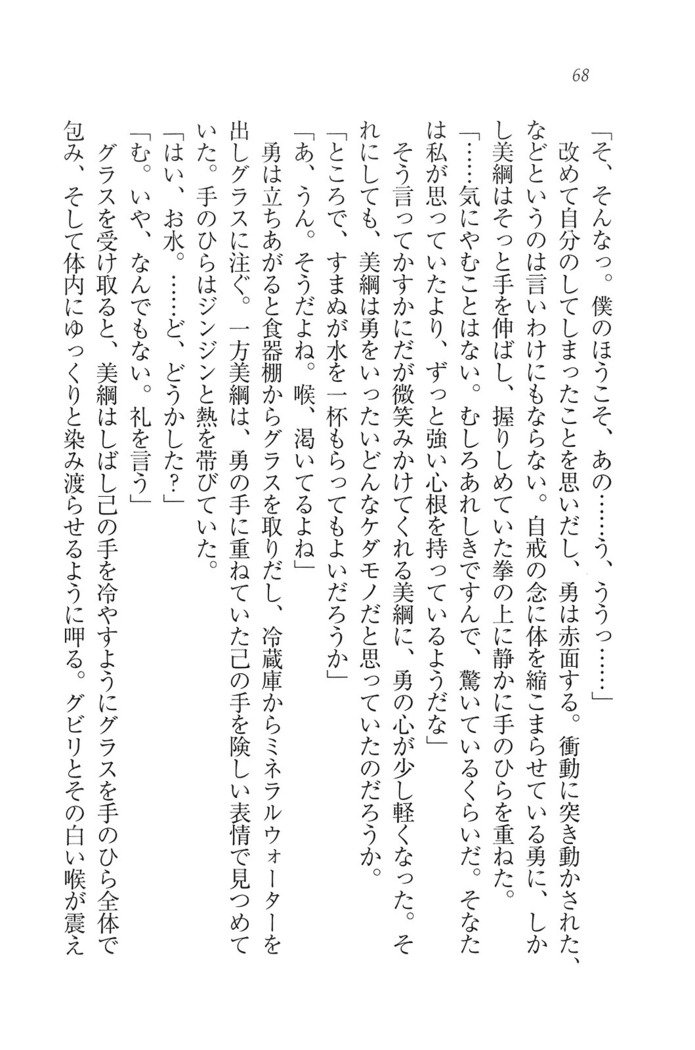 68
「そ、そんなっ。僕のほうこそ、あの……う、ううっ……」
　改めて自分のしてしまったことを思いだし、勇は赤面する。衝動に突き動かされた、
などというのは言いわけにもならない。自戒の念に体を縮こまらせている勇に、しか
し美綱はそっと手を伸ばし、握りしめていた拳の上に静かに手のひらを重ねた。
「……気にやむことはない。むしろあれしきですんで、驚いているくらいだ。そなた
は私が思っていたより、ずっと強い心根を持っているようだな」
　そう言ってかすかにだが微笑みかけてくれる美綱に、勇の心が少し軽くなった。そ
れにしても、美綱は勇をいったいどんなケダモノだと思っていたのだろうか。
「ところで、すまぬが水を一杯もらってもよいだろうか」
「あ、うん。そうだよね。喉、渇いてるよね」
　勇は立ちあがると食器棚からグラスを取りだし、冷蔵庫からミネラルウォーターを
出しグラスに注ぐ。一方美綱は、勇の手に重ねていた己の手を険しい表情で見つめて
いた。手のひらはジンジンと熱を帯びていた。
「はい、お水。……ど、どうかした？」
「む。いや、なんでもない。礼を言う」
　グラスを受け取ると、美綱はしばし己の手を冷やすようにグラスを手のひら全体で
包み、そして体内にゆっくりと染み渡らせるように呷る。グビリとその白い喉が震え